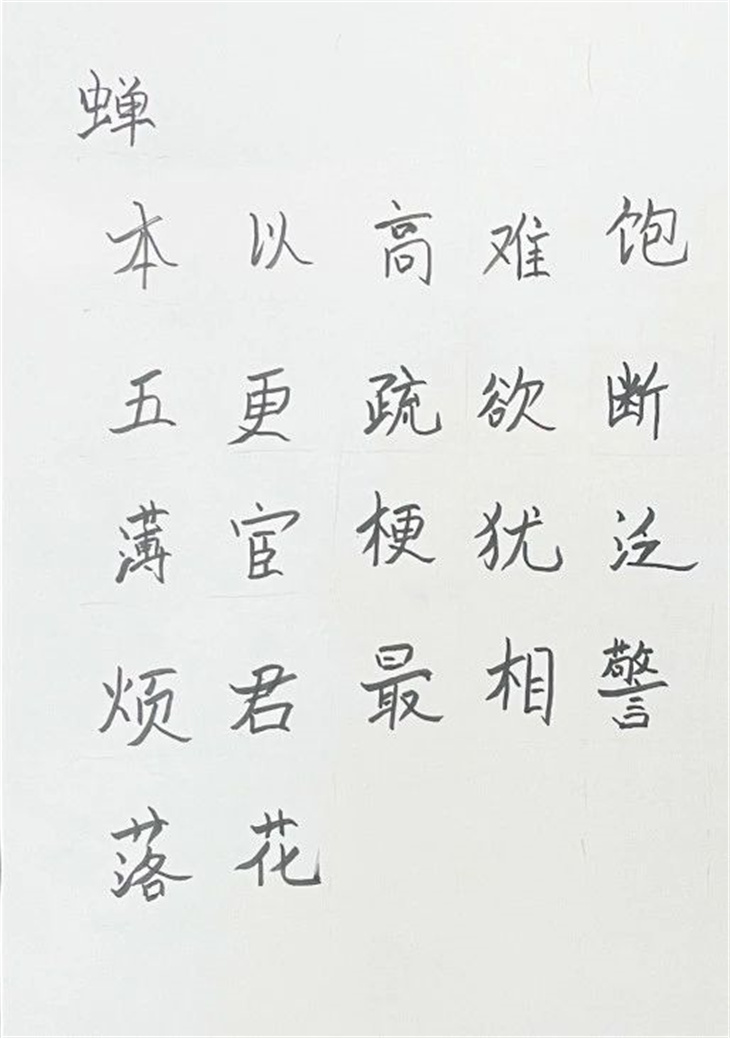 蝉
本以高难饱
五更疏欲断
薄宦梗犹泛
烦君最相警
落花